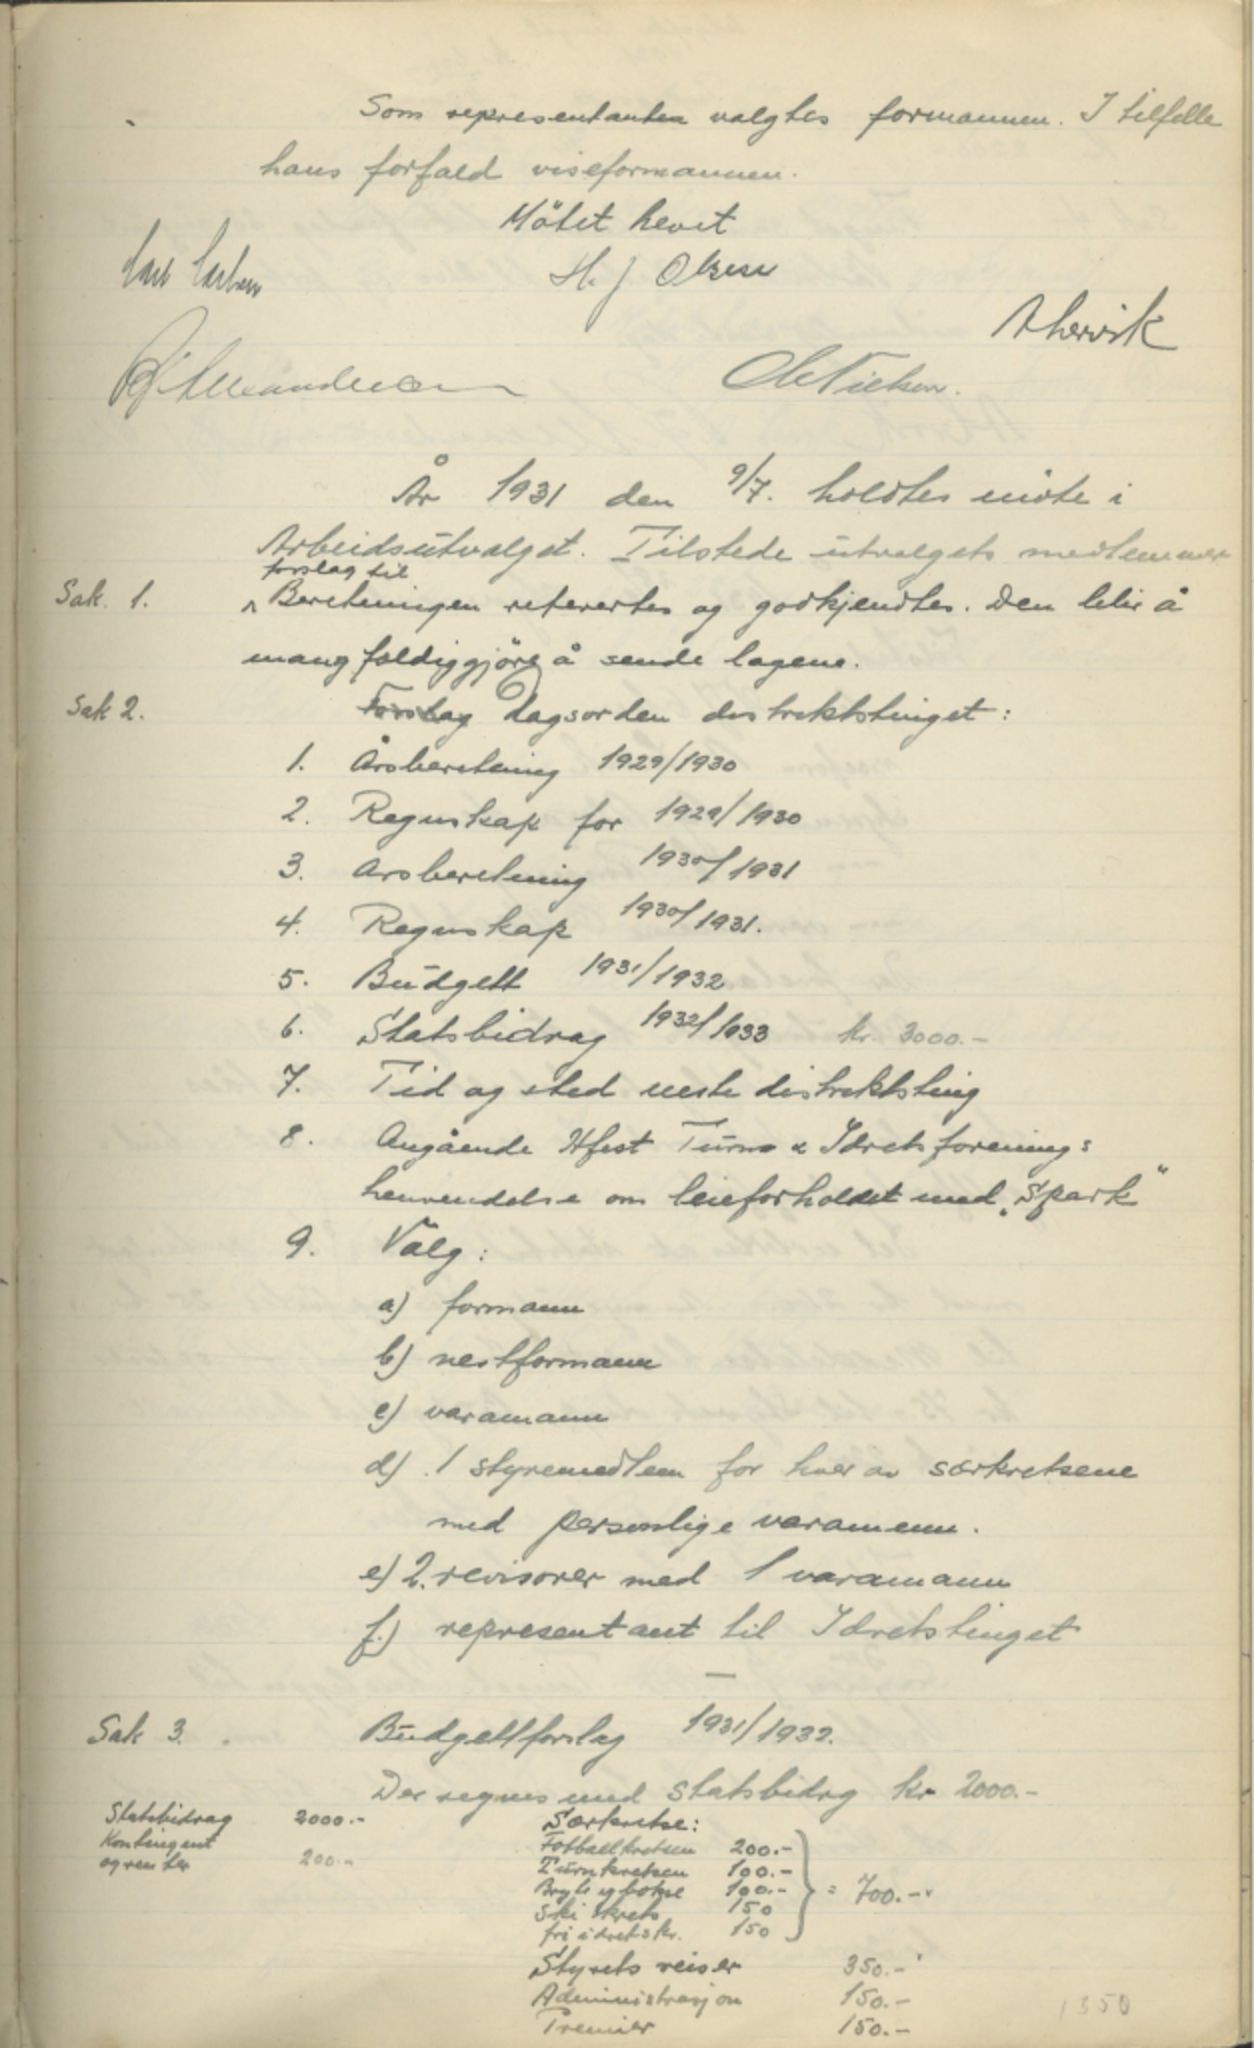 Som representanter valgtes formannen. I tilfelle
hans forfald viseformannen.
Mötet hevet
Carl Carlsen
H. J Olsen
A hervik
Ole Nielsen.
År 1931 den 9/7. holdtes möte i
Arbeidsutvalget. Tilstede utvalgets medlemmer
forslag til
Sak. 1. Beretningen refertes og godkjendtes. Den blir å
mangfoldiggjöre å sende lagene.
Sak 2. Forslag dagsorden distriktstinget:
1. Årsberetning 1929/1930
2. Regnskap for 1929/1930
3. Årsberetning 1930/1931
4. Regnskap 1930/1931.
5. Budgett 1931/1932
6. Statsbidrag 1932/1933 kr. 3000.-
7. Tid og sted neste distriktsting
8. Angående Hfest Turn & Idretsforenings
henvendelse om leieforholdet med „Spark"
9. Valg:
a) formann
b) nestformann
c) varamann
d) 1 styremedlem for hver av særkretsene
med personlige varamenn.
e) 2. revisorer med 1 varamann
f.) representant til Idretstinget
—
Sak 3. Budgettforslag 1931/1932.
Der regnes med statsbidrg kr 2000.-
Statsbidrag 2000.- Særkretse:
Kontingent Fotballkretsen 200.-
og renter 200.- Turnkretsen 100.-
Bryte og bokse 100.- = 700.-
Ski krets 150
fri idretskr. 150
Styrets reiser 350.-
Administrasjon 150.- 1350
Premier 150.-